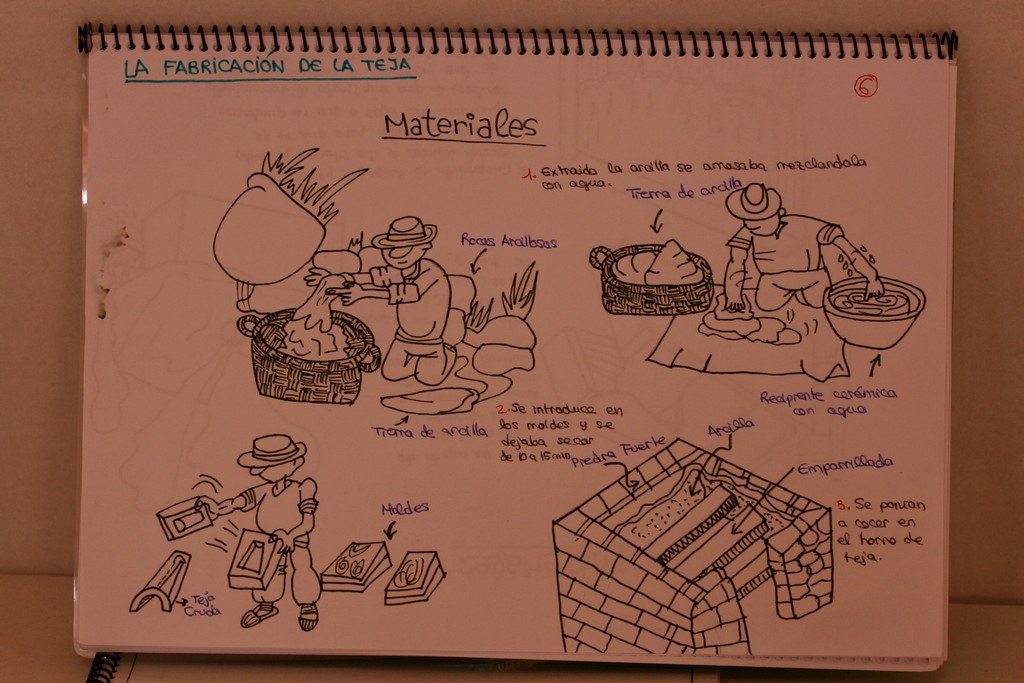 LA FABRICACIÓN DE LA TEJA
6
Materiales
1. Extraida la arcilla se amasaba mezclandola
con agua.
Tierra de arcilla
Rocas Arcillosas
Recipiente cerámica
con agua
Tierra de arcilla
2. Se introduce en
los moldes y se
dejaba secar
de 10 a 15 min
Piedra Fuerte
Arcilla
Emparrillada
3. Se ponian
a cocer en
el horno de
teja.
Moldes
Teja
Cruda